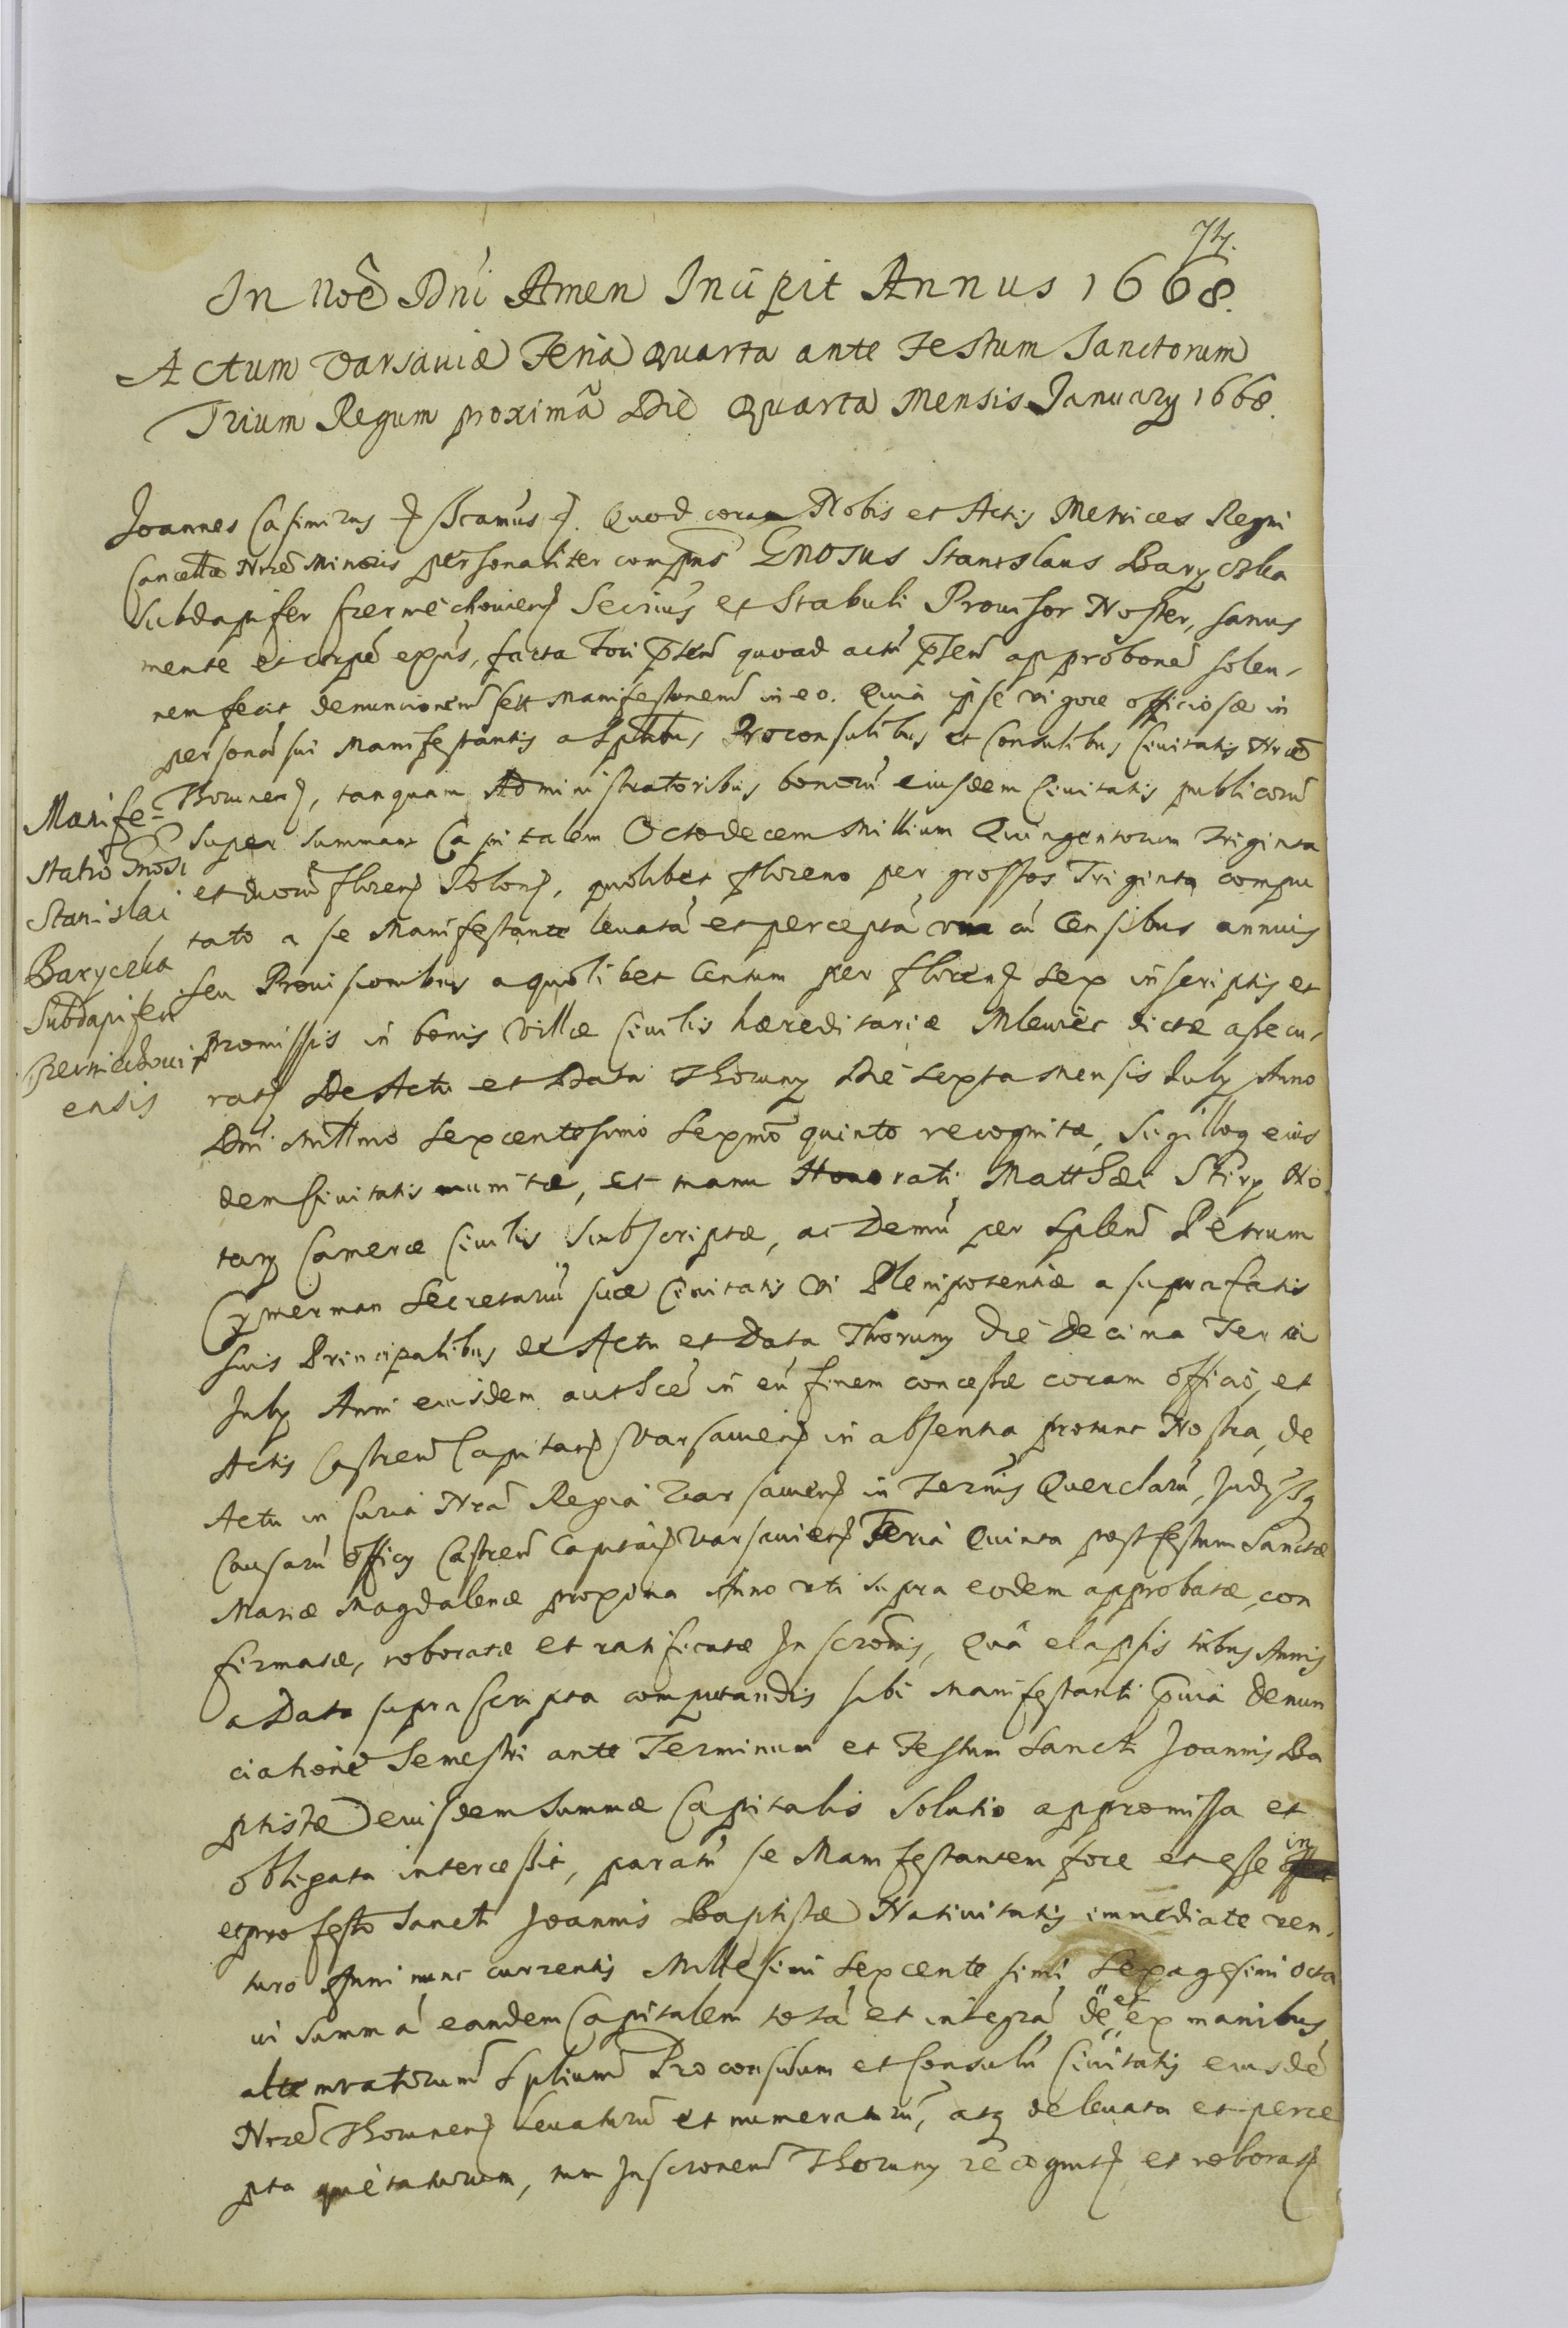 74.
In noē Dni Amen Incipit Annus 1668.
Actum Varsaviæ Feria Quarta ante Festum Sanctorum
Trium Regum proximā Die Quarta Mensis January 1668.
Joannes Casimirus Quod coram Nobis et Actis Metrices Regni
Cancellæ Nræ Minoris personaliter compns Gnosus Stanislaus Baryczka
Subdapifer Czerniechoviens Secrius et Stabuli Provisor Noster, sanus
mente et corpe expns, facta Fori quoad actu approbone solen,
nem fecit denuncionem seu Manifestonem in eo. Quia ipse vigore officiosæ in
personā sui Manifestantis a Splibus Proconsulibus et Consulibus Civitatis Nræ
Thorunens, tanquam Administratoribus bonoru eiusdem Civitatis publicoru
Super Summam Capitalem Octodecem Millium Quingentorum triginta
et duoru florens Polons, quolibet floreno per grossos Triginta compu
tato a se Manifestante levatā et perceptā una cū Censibus annuis
seu Provisionibus a quolibet Centum per florens sex inscriptis et
promissis in bonis Villæ Civilis hæreditariæ Mlewiec dictæ assecu,
rats De Actu et Data Thoruny Die Sexta mensis July Anno
Dni Millmo Sexcentesimo Sexmo quinto recognitæ, Sigilloq eius
dem Civitatis munitæ, et manu Honorati Matthæi Stirp No
tary Cameræ Civilis Subscriptæ, ac Demū per Splend Petrum
Cymerman Secretariū suæ Civitatis Vi Plenipotentiæ a suprafatis
suis Principalibus de Actu et Data Thoruny die decima Tertia
July Anni eiusdem authce in eū finem concessæ coram officio, et
Actis Castren Capitans Varsaviens in absentia protunc Nostra, de
Actu in Curia Nra Regia Varsaviens in Ternis Querelarū, Judysq
Causarū officy Castren Capitans Varsaviens Feria Quinta post festum Sanctæ
Mariæ Magdalenæ proxima Anno uti supra eodem approbatæ, con
firmatæ, roboratæ et ratificatæ Inscronis, Quā elapsis tribus Annis
a Data suprascripta computandis sibi Manifestanti prvia denun
ciatione Semestri ante Terminum et Festum Sancti Joannis Ba
ptistæ eiusdem Summæ Capitalis Solutio appromissa et
obligata intercessit, paratū se Manifestantem fore et esse in
et pro festo Sancti Joannis Baptistæ Nativitatis immediate ven,
turo Anni nunc currentis Millesimi Sexcentesimi Sexagesimi octa
vi Summā eandem Capitalem totā et integrā de et ex manibus
altemratorum Splium Proconsulum et Consulū Civitatis eiusdē
Nræ Thorunens Levaturū et numeraturū, atq de levata et perce
pta quietaturum, tum Inscronem Thoruny recognits et roborats
Manife=
statio Gnosi
Stanislai
Baryczka
Subdapiferi
Czerniechovi
ensis